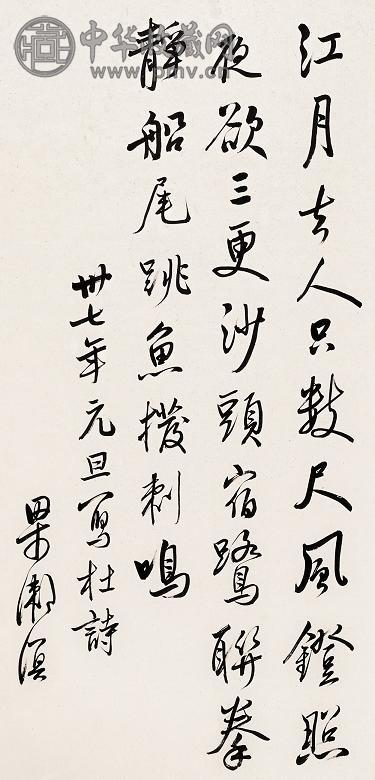 中华收藏网
www.pmv.cn
江月去人只數尺風鐙照
夜欲三更沙頭宿鷺聯拳
靜船尾跳魚撥刺鳴
卅七年元旦寫杜詩